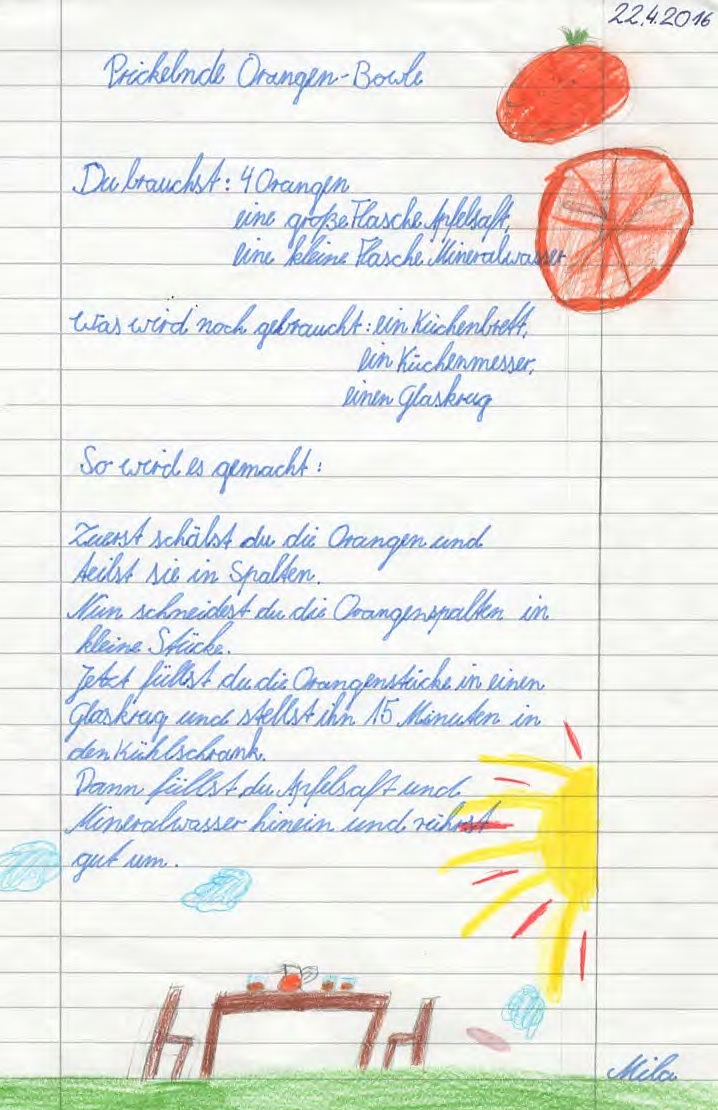 22.4.2016
Prickelnde Orangen-Bowle
Du brauchst: 4 Orangen
eine große Flasche Apfelsaft,
eine kleine Flasche Mineralwasser
Was wird noch gebraucht: ein Küchenbrett,
ein Küchenmesser,
einen Glaskrug
So wird es gemacht:
Zuerst schälst du die Orangen und
teilst sie in Spalten.
Nun schneidest du die Orangenspalten in
kleine Stücke.
Jetzt füllst du die Orangenstücke in einen
Glaskrug und stellst ihn 15 Minuten in
den Kühlschrank.
Dann füllst du Apfelsaft und
Mineralwasser hinein und rührst
gut um.
Mila